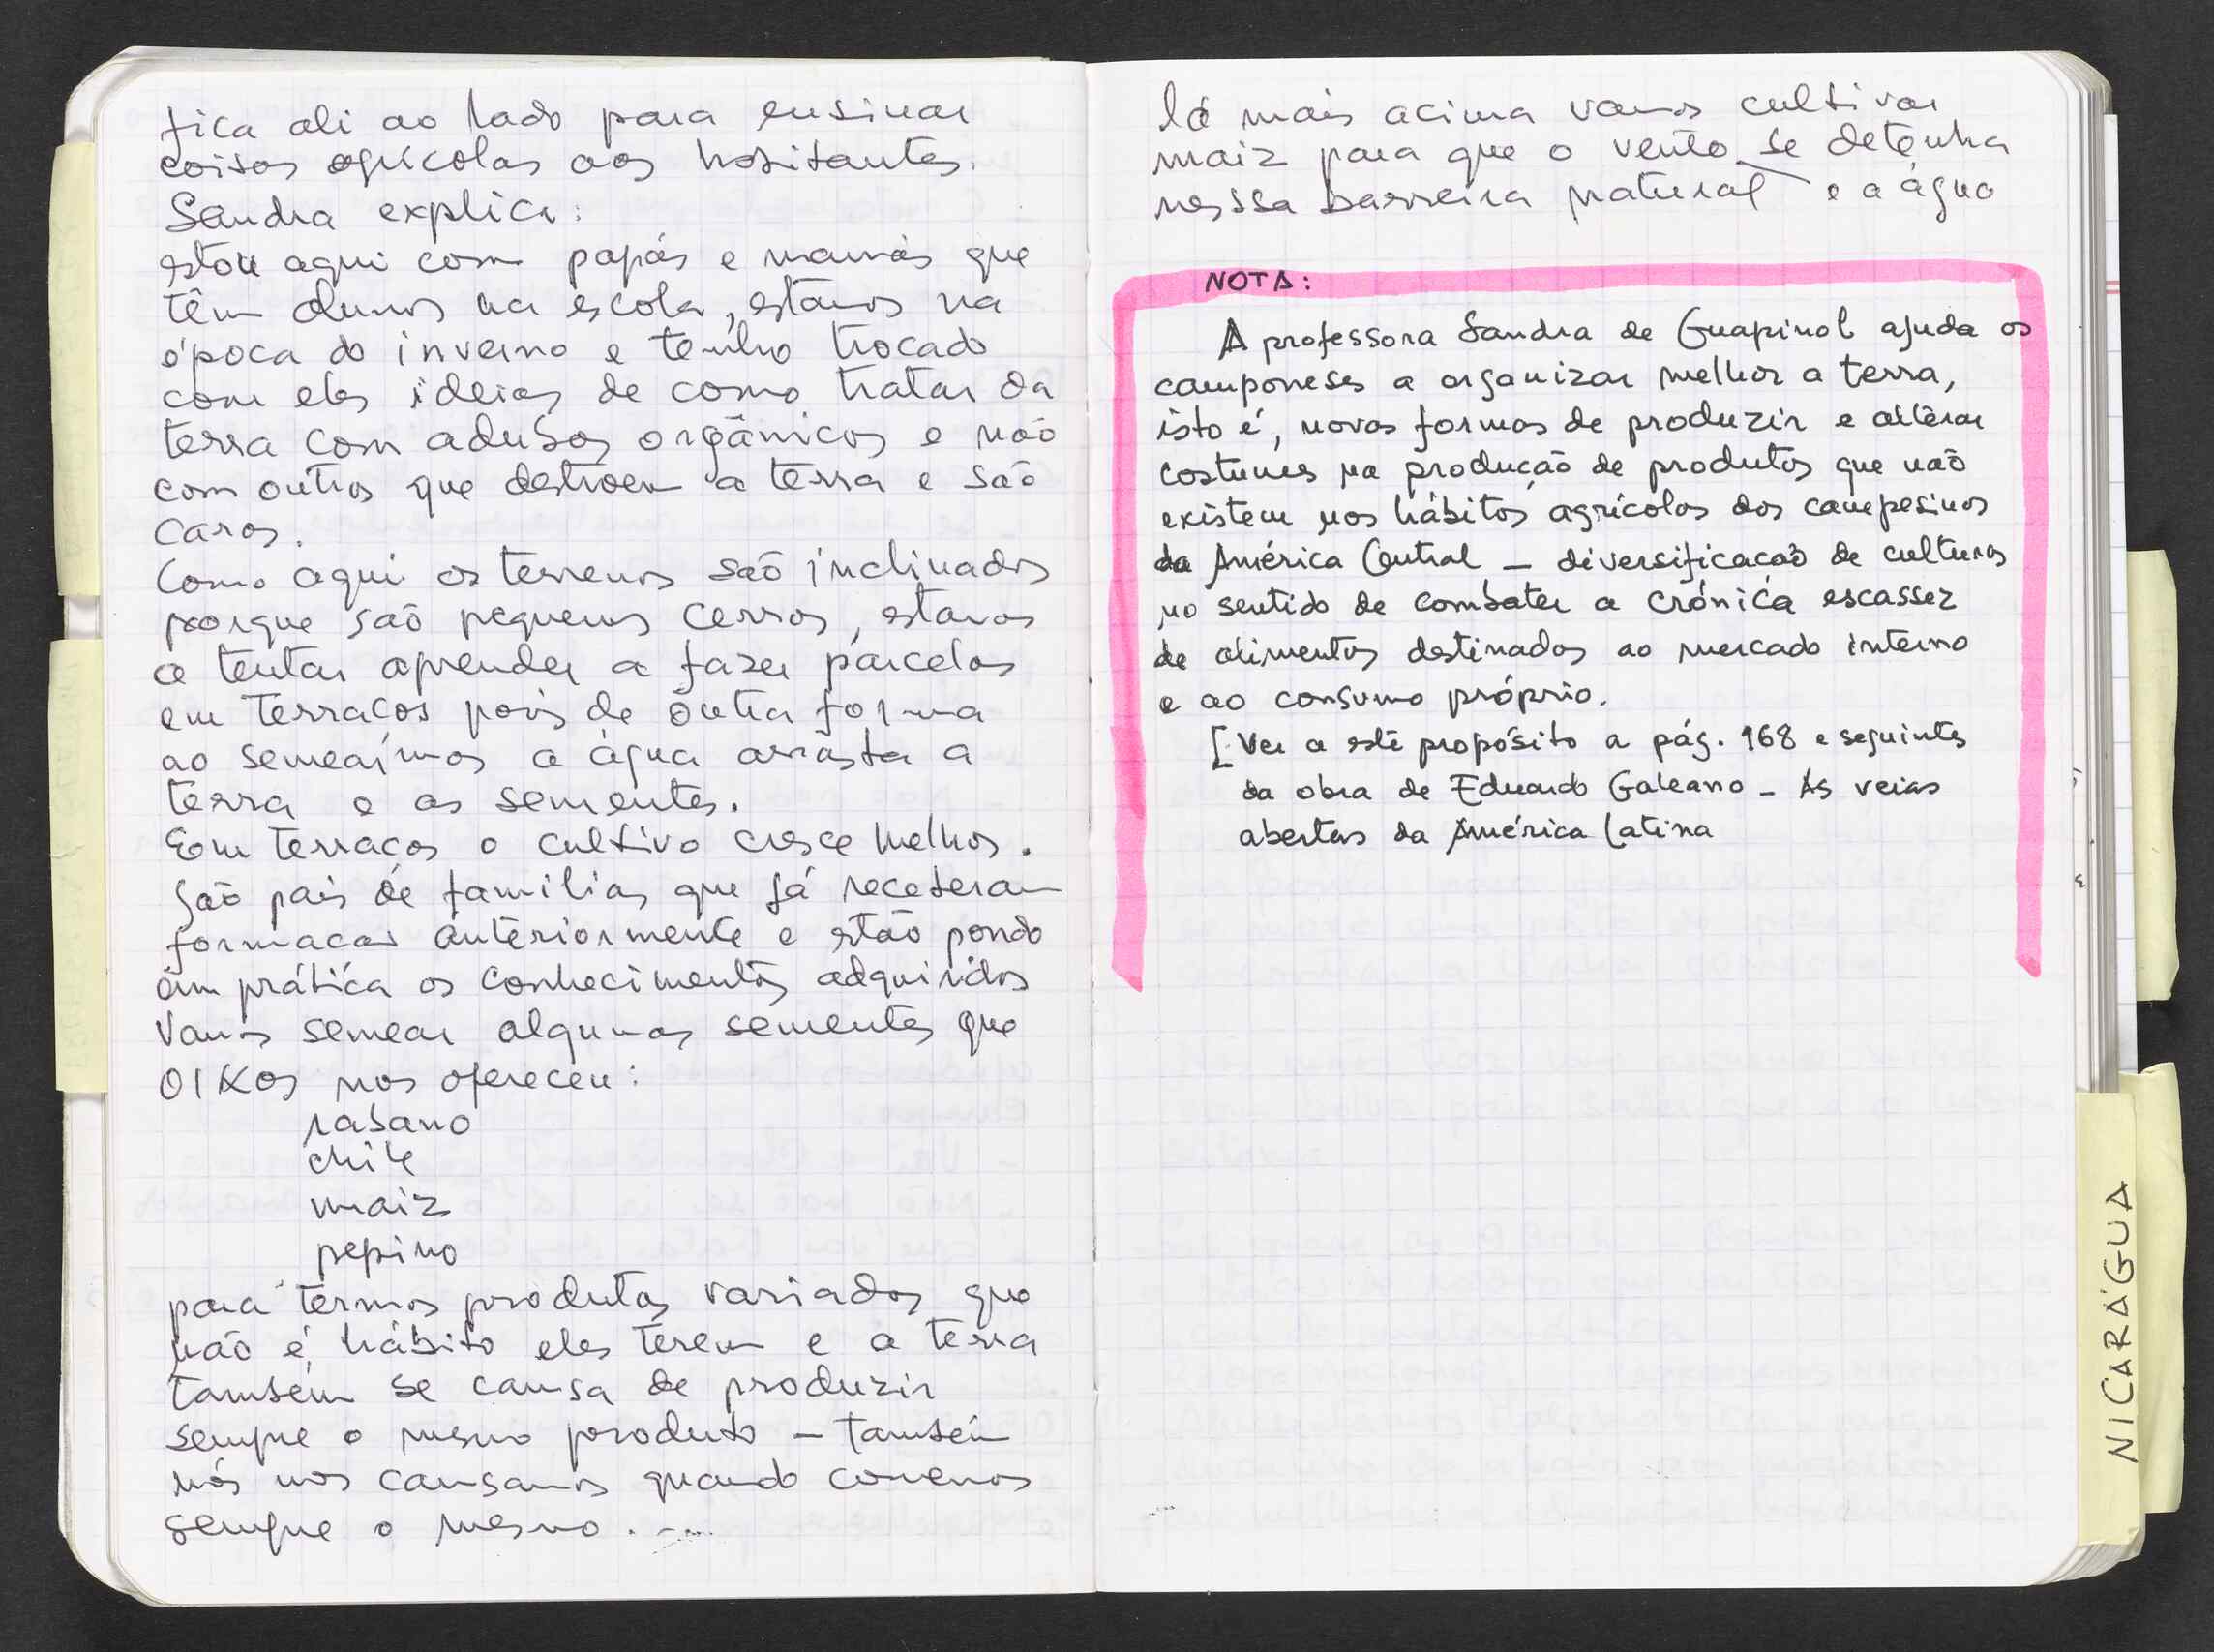 fica ali ao lado para ensinar
coisas agrícolas aos habitantes.
Sandra explica:
estou aqui com papás e mamás que
têm alunos na escola, estamos na
época do inverno e tenho trocado
com eles ideias de como tratar da
terra com adubos orgânicos e não
com outros que destroem a terra e são
caros.
Como aqui os terrenos são inclinados
porque são pequenos cerros, estamos
a tentar aprender a fazer parcelas
em terraços pois de outra forma
ao semearmos a água arrasta a
terra e as sementes.
Em terraços o cultivo cresce melhor.
São pais de familias que já receberam
formacao anteriormente e estão pondo
em prática os conhecimentos adquiridos
Vamos semear algumas sementes que
OIKOS nos ofereceu:
rabano
chile
maiz
pepino
para termos produtos variados que
não é hábito eles terem e a terra
também se cansa de produzir
sempre o mesmo produto – também
nós nos cansamos quando comemos
sempre o mesmo.
lá mais acima vamos cultivar
maiz para que o vento se detenha
nessa barreira natural e a água
NOTA:
A professora Sandra de Guapinol ajuda os
camponeses a organizar melhor a terra,
isto é, novas formas de produzir e alterar
costumes na produção de produtos que não
existem nos hábitos agrícolas dos campesinos
da América Central – diversificacão de culturas
no sentido de combater a crónica escassez
de alimentos destinados ao mercado interno
e ao consumo próprio.
[Ver a este propósito a pág. 168 e seguintes
da obra de Eduardo Galeano – As veias
abertas da América Latina
NICARÁGUA